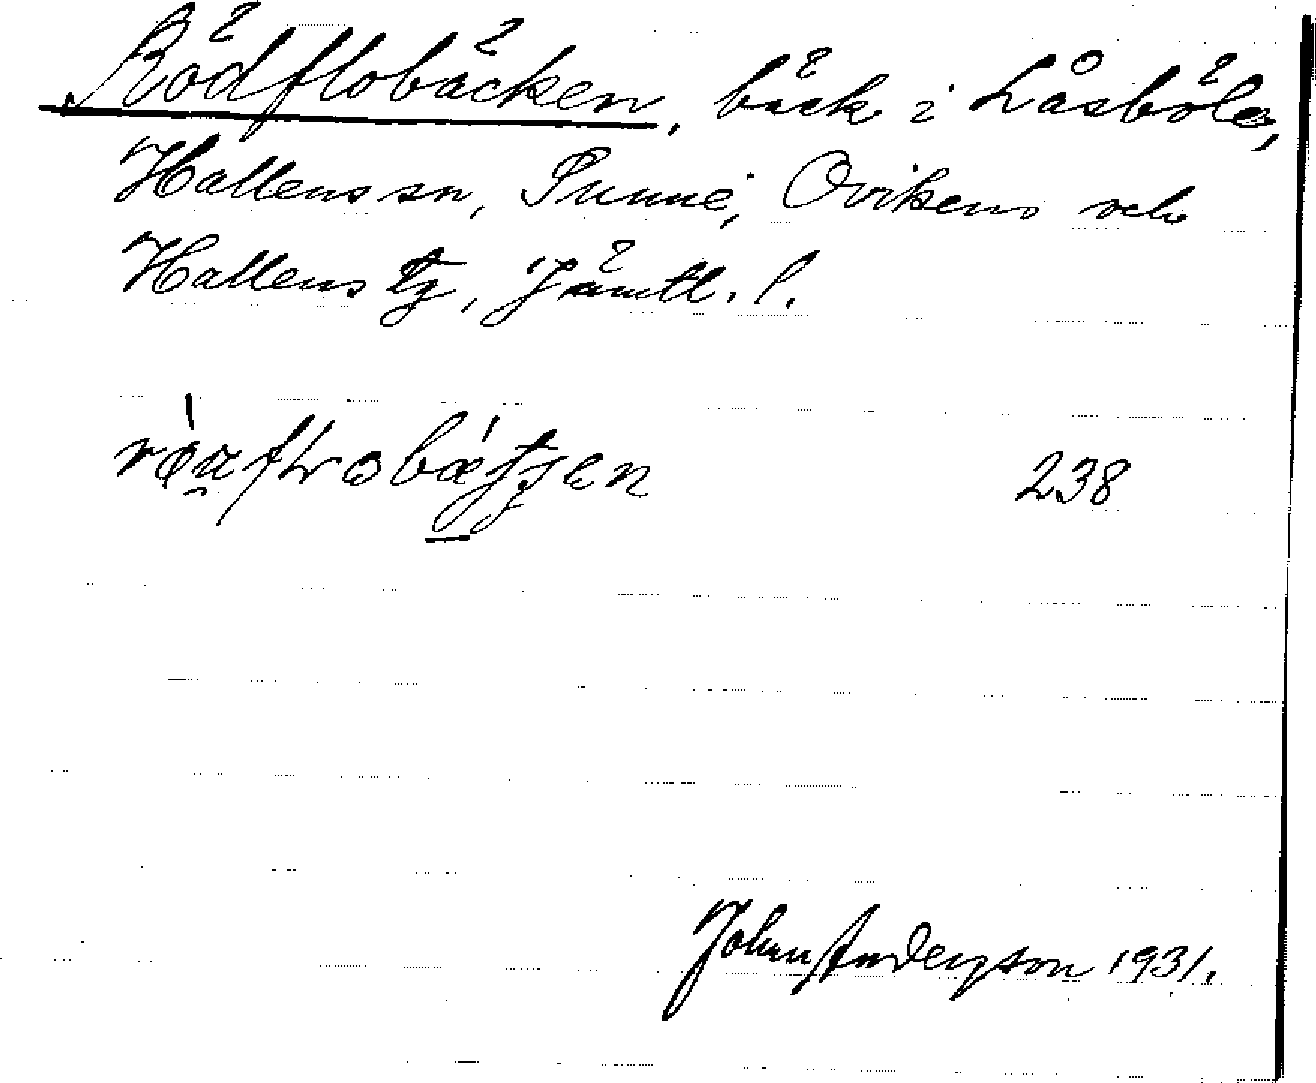 Rödflobäcken, bäck i Låsböle,
Hallens sn, Sunne, Ovikens och
Hallens tg, Jämtl. l.
238
John Anderson 1931.